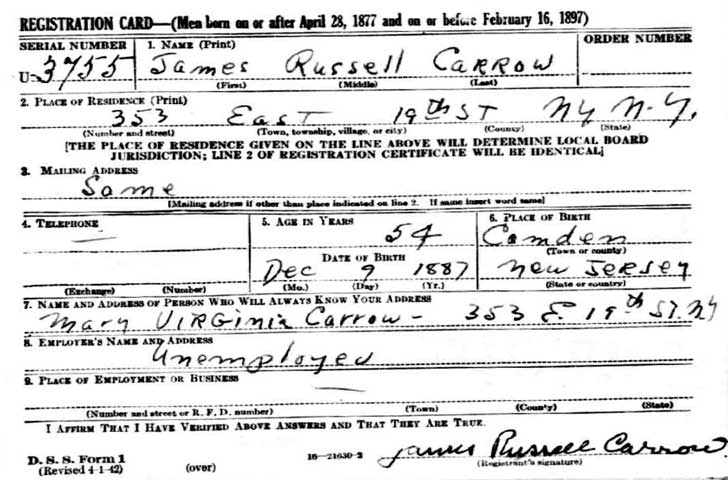 REGISTRATION CARD—(Men born on or after April 28, 1877 and on or before February 16, 1897)
SERIAL NUMBER 1. NAME (Print) ORDER NUMBER
U-3755 James Russell CARROW
(First) (Middle) (Last)
2. PLACE OF RESIDENCE (Print)
353 EAST 19th ST NY N-Y.
(Number and street) (Town, township, village, or city) (County) (State)
[THE PLACE OF RESIDENCE GIVEN ON THE LINE ABOVE WILL DETERMINE LOCAL BOARD
JURISDICTION; LINE 2 OF REGISTRATION CERTIFICATE WILL BE IDENTICAL]
3. MAILING ADDRESS
Same
[Mailing address if other than place indicated on line 2. If same insert word same]
4. TELEPHONE 5. AGE IN YEARS 6. PLACE OF BIRTH
54 Camden
(Town or county)
DATE OF BIRTH
Dec 9 1887 New Jersey
(Exchange) (Number) (Mo.) (Day) (Yr.) (State or country)
7. NAME AND ADDRESS OF PERSON WHO WILL ALWAYS KNOW YOUR ADDRESS
Mary VIRGINIA Carrow - 353 E. 19th ST. NY
8. EMPLOYER'S NAME AND ADDRESS
Unemployed
9. PLACE OF EMPLOYMENT OR BUSINESS
(Number and street or R. F. D. number) (Town) (County) (State)
I AFFIRM THAT I HAVE VERIFIED ABOVE ANSWERS AND THAT THEY ARE TRUE.
James Russell Carrow
D. S. S. Form 1 16—21630-2 (Registrant's signature)
(Revised 4-1-42) (over)